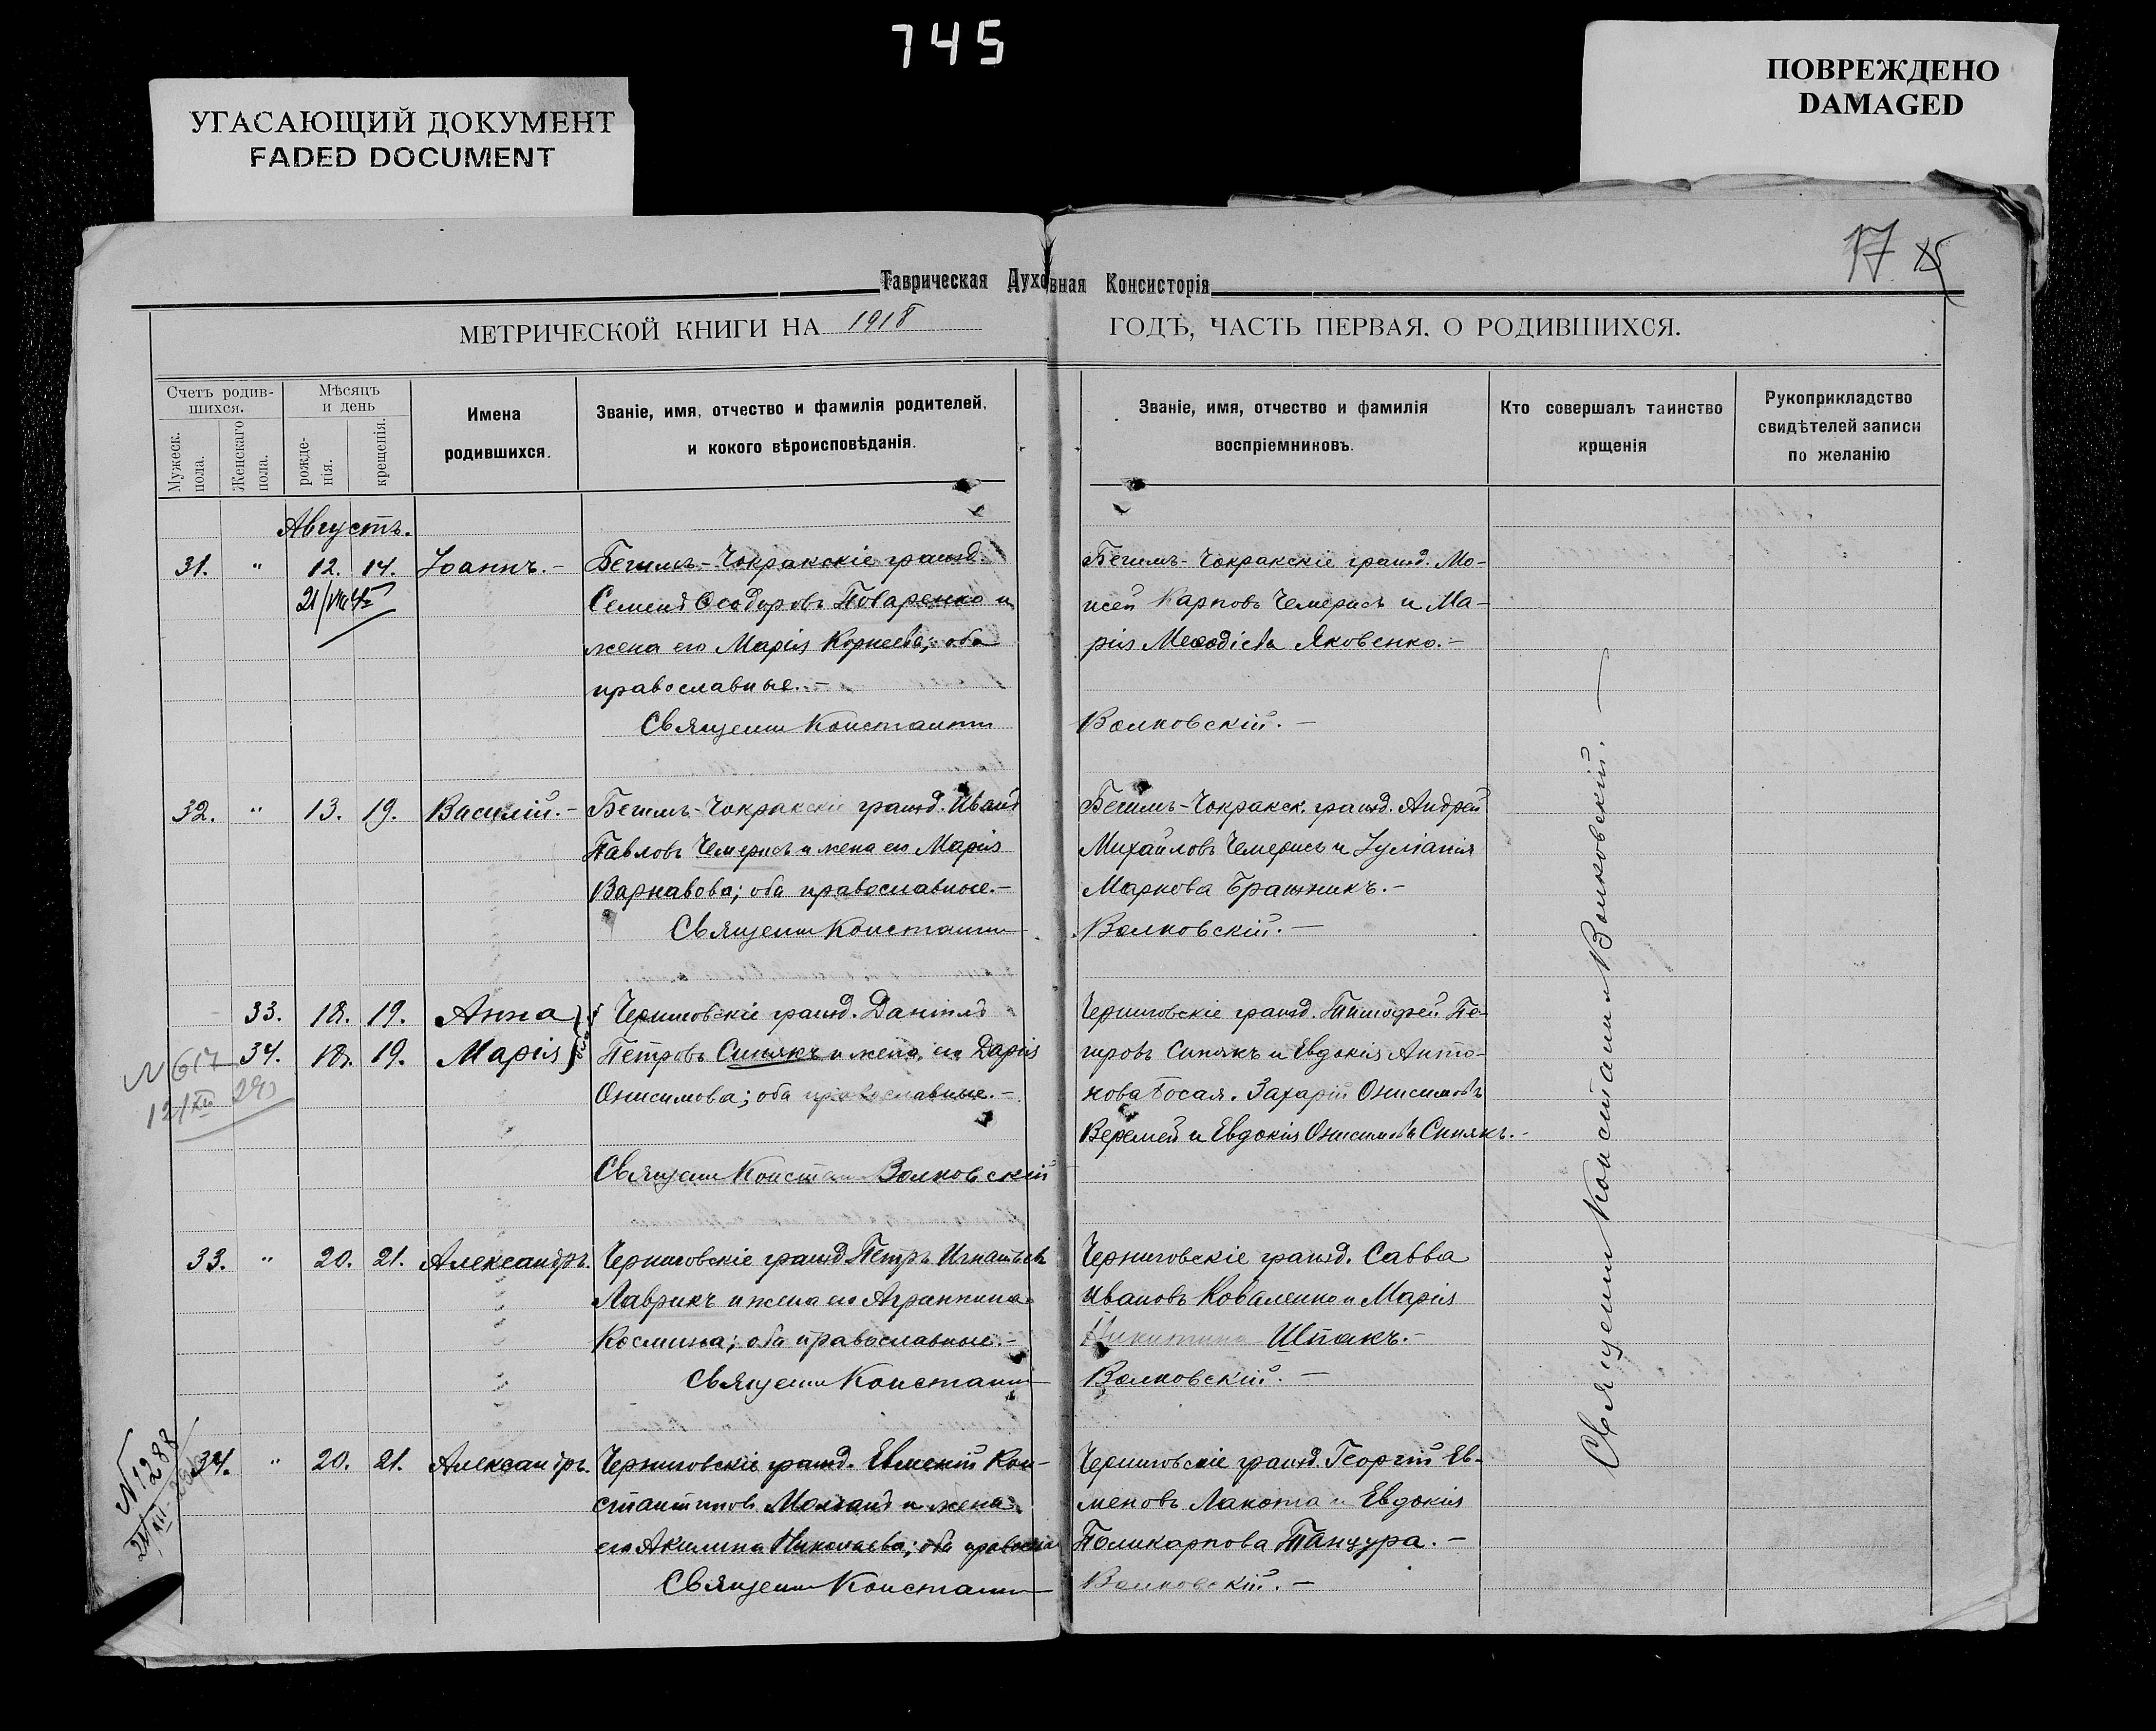 745
УГАСАЮЩИЙ ДОКУМЕНТ
FADED DOCUMENT
ПОВРЕЖДЕНО
DAMAGED
17
Таврическая Духовная Консисторія
МЕТРИЧЕСКОЙ КНИГИ НА 1918 ГОДЪ, ЧАСТЬ ПЕРВАЯ. О РОДИВШИХСЯ.
Счетъ родив-
шихся.
Мужеск.
пола.
Женскаго
пола.
Мѣсяцъ
и день
рожде-
нія.
крещенія.
Имена
родившихся.
Званіе, имя, отчество и фамилія родителей,
и кокого вѣроисповѣданія.
Званіе, имя, отчество и фамилія
воспріемниковъ.
Кто совершалъ таинство
крщенія
Рукоприкладство
свидѣтелей записи
по желанію
Августъ.
31. " 12. 14. Іоаннъ. –
Бегимъ-Чокракскіе гражд.
Семенъ Ѳеодоровъ Поваренко и
жена его Марія Корнеева; оба
православные. –
Священ Константин
Бегимъ-Чокракскіе гражд. Мо-
исей Карповъ Чемерисъ и Ма-
рія Меѳодіева Яковенко. –
Волковскій. –
32. " 13. 19. Василій. –
Бегимъ-Чокракскіе гражд. Иванъ
Павловъ Чемерисъ и жена его Марія
Варнавова; оба православные. –
Священ Константин
Бегимъ-Чокракск. гражд. Андрей
Михайловъ Чемерисъ и Іуліанія
Маркова Бражникъ. –
Волковскій. –
33. 18. 19. Анна
34. 18. 19. Марія
Черниговскіе гражд. Даніилъ
Петровъ Синякъ и жена его Дарія
Онисимова; оба православные. –
Священ Констан Волковскій
Черниговскіе гражд. Тимофей Пе-
тровъ Синякъ и Евдокія Анто-
нова Босая. Захарій Онисимовъ
Веремей и Евдокія Онисимова Синякъ. –
33. " 20. 21. Александръ.
Черниговскіе гражд. Петръ Игнатьевъ
Лаврикъ и жена его Агриппина
Космина; оба православные. –
Священ Константин
Черниговскіе гражд. Савва
Ивановъ Коваленко и Марія
Никитина Шпакъ. –
Волковскій. –
№ 1288
34. " 20. 21. Александръ.
Черниговскіе гражд. Евменій Кон-
стантиновъ и жена
его Акилина Николаева; оба правосла
Священ Константин
Черниговскіе гражд. Георгій Ев-
меновъ Лакота и Евдокія
Поликарпова Танцура. –
Волковскій. –
Священ Константин Волковскій. –